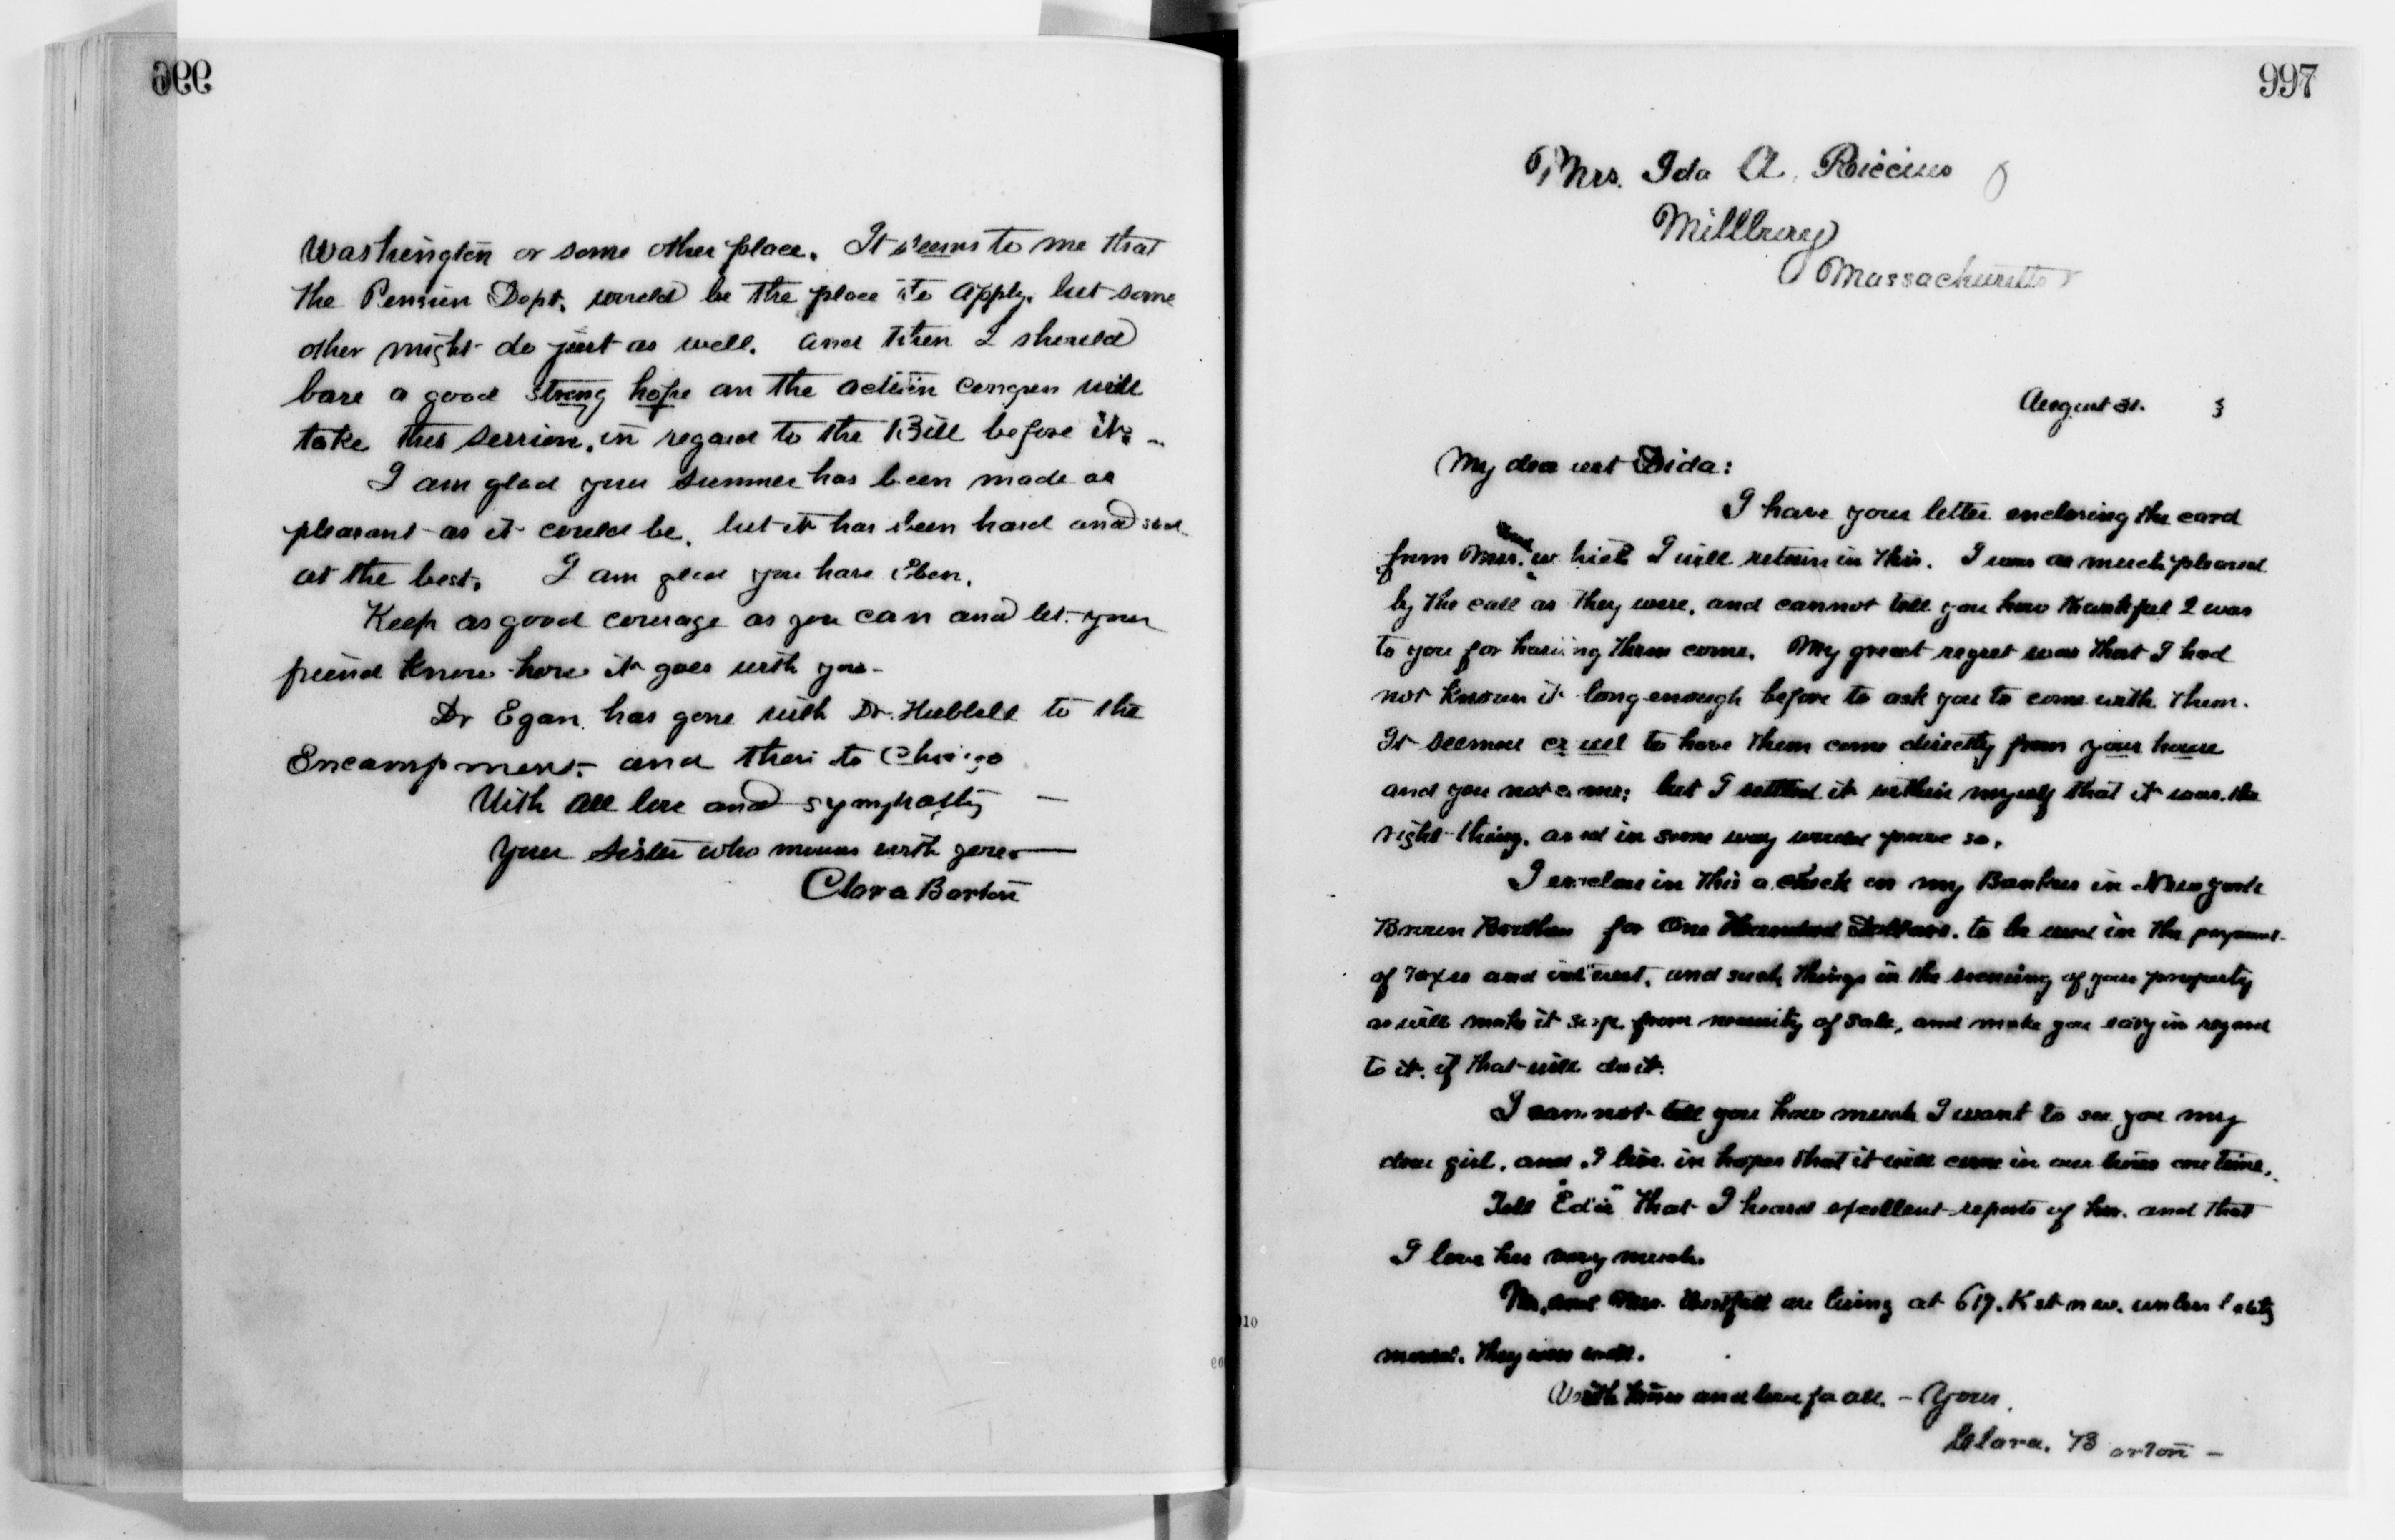 996
Washington or some other place. It seems to me that
the Pension Dept. would be the place to apply, but some
other might do just as well. and then I should
base a good strong hope on the action congress will
take this session, in regard to the Bill before it. –
I am glad your summer has been made as
pleasant as it could be, but it has been hard and sad
at the best. I am glad you have Eben.
Keep as good courage as you can and let your
friend know how it goes with you –
Dr Egan has gone with Dr. Hubbell to the
Encampment and then to Chicago
With all love and sympathy –
Your sister who mourns with you –
Clara Barton
997
Mrs. Ida A. Riccius
Millbury
Massachusetts
August 31. 3
My dear Ida:
I have your letter enclosing the card
from Mrs. which I will return in this. I was as much pleased
by the call as they were, and cannot tell you how thankful I was
to you for having them come. My great regret was that I had
not known it long enough before to ask you to come with them.
It seemed cruel to have them come directly from your house
and you not come; but I settled it within myself that it was the
right thing, and in some way would prove so.
I enclose in this a check on my Bankers in New York
Brown Brothers for One Hundred Dollars. to be used in the payment
of taxes and interest, and such things in the securing of your property
as will make it safe from necessity of sale, and make you easy in regard
to it, if that will do it.
I cannot tell you how much I want to see you my
dear girl, and I live in hopes that it will come in our lives one time.
Tell "Edie" that I heard excellent reports of her. and that
I love her very much.
Mr. and Mrs. Westfall are living at 617. K st n w. unless lately
moved. They were well.
With kisses and love for all. – Yours,
Clara. Barton –